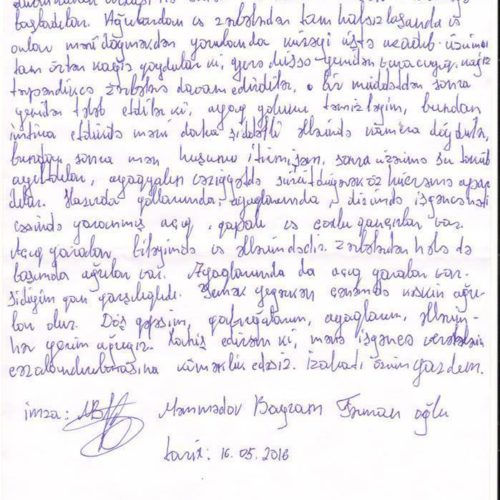 başladılar. Ağrılardan və zərbələrdən tam halsızlaşanda və
onlar məni döyməkdən yorulanda kürəyi üstə uzadıb üzümü
tam örtən kağız qoydular ki, yenə
zərbələrə davam edirdilər. bir müddətdən sonra
yenidən tələb etdilər ki, ayaq yolunu təmizləyim, bundan
imtina etdikdə məni daha şiddətli əllərində döydülər,
bundan sonra mən huşumu itirmişəm, sonra üzümə su
ayıltdılar, ayaqyalın vəziyyətdə öz hücrəmə apar
dılar. Hazırda qollarımda, ayaqlarımda, dizimdə işgəncə nəti
cəsində yaranmış açıq, qapalı və çoxlu qançırlar var.
Açıq yaralar, biləyimdə və əllərimdədir. Zərbələrdən hələ də
başımda ağrılar var. Ayaqlarımda da açıq yaralar var.
Sidiyim qan qarışıqlıdı. Yemək yeyərkən çənəmdə kəskin ağrı
lar olur. Döş qəfəsim, qabırğalarım, ayaqlarım, əllərim
hər yerim ağrıyır. Xahiş edirəm ki, mənə işgəncə verənlərin
cəzalandırılmasına köməklik edəsiz. İzahatı özüm yazdım.
imza: Məmmədov Bayram Fərman oğlu
tarix: 16.05.2016